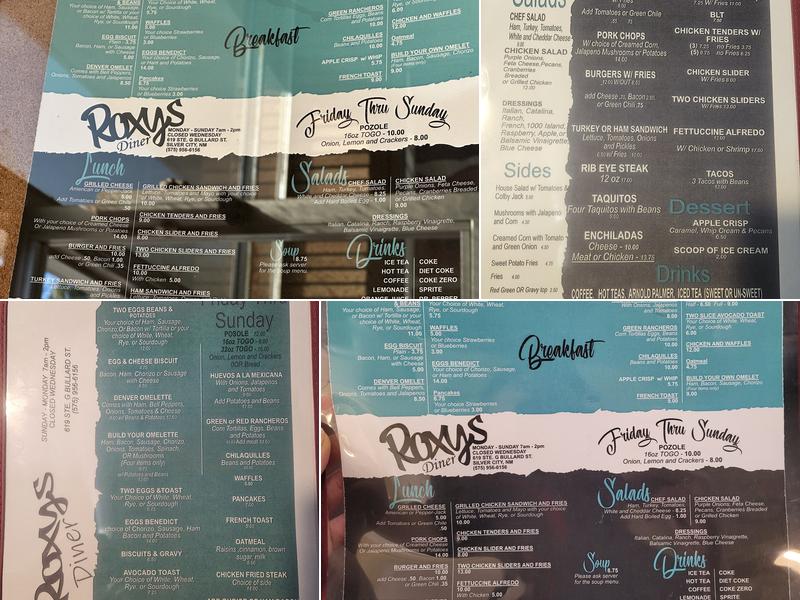 & BEANS
8.75
WAFFLES
5.00
Your choice Strawberries
or Blueberries
3.00
EGG BISCUIT
Plain - 3.75
Bacon, Ham,
or Sausage
with Cheese
5.00
EGGS BENEDICT
Your choice of Chorizo,
Sausage, or Ham
and Potatoes
14.00
DENVER OMELET
Comes with Bell Peppers,
Onions, Tomatoes, and Cheese
8.50
Pancakes
6.75
Your choice Strawberries
or Blueberries 3.00
Breakfast
GREEN RANCHEROS
Corn Tortillas Eggs, Beans
and Potatoes
10.00
CHICKEN AND WAFFLES
12.00
CHILAQUILES
Beans and Potatoes
10.00
Oatmeal
4.75
APPLE CRISP w/ WHIP
5.75
BUILD YOUR OWN OMELET
Ham, Bacon, Sausage, Chorizo
9.00
FRENCH TOAST
8.00
ROXYS
Diner
MONDAY - SUNDAY 7am - 2pm
CLOSED WEDNESDAY
619 STE. G BULLARD ST.
SILVER CITY, NM
(575) 956-6156
Friday Thru Sunday
POZOLE
16oz TOGO - 10.00
Onion, Lemon and Crackers - 8.00
Lunch
GRILLED CHEESE
American or Pepper Jack
5.00
Add Tomatoes or Green Chile
.50
PORK CHOPS
With your choice of Creamed Corn
Or Jalapeno Mushrooms or Potatoes
14.00
BURGER AND FRIES
10.00
add cheese .50 Bacon 1.00
or Green Chile .35
TURKEY SANDWICH AND FRIES
GRILLED CHICKEN SANDWICH AND FRIES
Lettuce, Tomatoes and Mayo with your choice
of White, Wheat, Rye, or Sourdough
10.00
CHICKEN TENDERS AND FRIES
9.00
CHICKEN SLIDER AND FRIES
8.00
TWO CHICKEN SLIDERS AND FRIES
13.00
FETTUCINE ALFREDO
10.00
With Chicken 5.00
HAM SANDWICH AND FRIES
Salads
CHEF SALAD
Ham, Turkey, Tomatoes,
White and Cheddar Cheese - 8.25
Add Hard Boiled Egg - 1.00
CHICKEN SALAD
Purple Onions, Feta Cheese,
Pecans, Cranberries Breaded
or Grilled Chicken
9.00
DRESSINGS
Italian, Catalina, Ranch, Raspberry Vinaigrette,
Balsamic Vinaigrette, Blue Cheese
Soup
8.75
Please ask server
for the soup menu.
Drinks
ICE TEA
HOT TEA
COFFEE
LEMONADE
ORANGE JUICE
COKE
DIET COKE
COKE ZERO
SPRITE
DR. PEPPER
Salads
CHEF SALAD
Ham, Turkey, Tomatoes,
White and Cheddar Cheese
CHICKEN SALAD
Purple Onions,
Feta Cheese, Pecans,
Cranberries
Breaded
or Grilled Chicken
DRESSINGS
Italian, Catalina,
Ranch,
French, 1000 Island,
Raspberry, Apple, or
Balsamic Vinaigrette,
Blue Cheese
Sides
House Salad w/ Tomatoes &
Colby Jack
Mushrooms with Jalapeno
and Corn
Creamed Corn with Tomato
and Green Onion
Sweet Potato Fries
Fries
Red Green OR Gravy top
Add Tomatoes or Green Chile
PORK CHOPS
W/ choice of Creamed Corn,
Jalapeno Mushrooms or Potatoes
14.00
BURGERS W/ FRIES
12.00
or Green Chili .75
TURKEY OR HAM SANDWICH
Lettuce, Tomatoes, Onions
and Pickles
RIB EYE STEAK
12 oz
TAQUITOS
Four Taquitos with Beans
ENCHILADAS
Cheese - 10.00
Meat or Chicken - 13.75
BLT
CHICKEN TENDERS W/
FRIES
(3) 7.25 no Fries 3.75
(5) 9.75 no Fries 6.25
CHICKEN SLIDER
W/ Fries
TWO CHICKEN SLIDERS
W/ Fries 13.00
FETTUCCINE ALFREDO
W/ Chicken or Shrimp 17.00
TACOS
3 Tacos w/ Beans
12.00
Dessert
APPLE CRISP
Caramel, Whip Cream & Pecans
SCOOP OF ICE CREAM
2.00
Drinks
COFFEE, HOT TEAS, ARNOLD PALMER, ICED TEA (SWEET OR UN-SWEET)
SUNDAY - MONDAY 7am - 2pm
CLOSED WEDNESDAY
619 STE. G BULLARD ST.
(575) 956-6156
ROXYS
Diner
TWO EGGS BEANS &
POTATOES
Your choice of Ham, Sausage,
Chorizo Or Bacon w/ Tortilla or your
choice of White, Wheat,
Rye, or Sourdough
EGG & CHEESE BISCUIT
Bacon, Ham, Chorizo or Sausage
DENVER OMELETTE
Comes with Ham, Bell Peppers,
Onions, Tomatoes & Cheese
BUILD YOUR OMELETTE
Ham, Bacon, Sausage, Chorizo,
Onions, Tomatoes, Spinach,
OR Mushrooms
(Four items only)
TWO EGGS &TOAST
Your Choice of White, Wheat,
Rye, or Sourdough
EGGS BENEDICT
choice of Chorizo, Sausage, Ham
Bacon and Potatoes
14.00
BISCUITS & GRAVY
AVOCADO TOAST
Your Choice of White, Wheat,
Rye, or Sourdough
Sunday
POSOLE
16oz TOGO
32oz TOGO
Onion, Lemon and Crackers
OOR Bread
HUEVOS A LA MEXICANA
With Onions, Jalapenos
and Tomatoes
Add Potatoes and Beans
GREEN or RED RANCHEROS
Corn Tortillas, Eggs, Beans
and Potatoes
CHILAQUILES
Beans and Potatoes
WAFFLES
PANCAKES
FRENCH TOAST
OATMEAL
Raisins, cinnamon, brown
sugar, milk
CHICKEN FRIED STEAK
Choice of side
Bacon w/ Tortilla or your
choice of White, Wheat,
Rye, or Sourdough
11.00
WAFFLES
5.00
Your choice Strawberries
or Blueberries
3.00
EGG BISCUIT
Plain - 3.75
Bacon, Ham,
or Sausage
with Cheese
5.00
EGGS BENEDICT
Your choice of Chorizo,
Sausage, or Ham
and Potatoes
14.00
DENVER OMELET
Comes with Bell Peppers,
Onions, Tomatoes, and Cheese
8.50
Pancakes
6.75
Your choice Strawberries
or Blueberries 3.00
Breakfast
With Onions, Jalapenos
and Tomatoes
GREEN RANCHEROS
Corn Tortillas Eggs, Beans
and Potatoes
10.00
CHILAQUILES
Beans and Potatoes
10.00
APPLE CRISP w/ WHIP
5.75
FRENCH TOAST
8.00
TWO SLICE AVOCADO TOAST
Your choice of White, Wheat,
Rye, or Sourdough
CHICKEN AND WAFFLES
12.00
Oatmeal
4.75
BUILD YOUR OWN OMELET
Ham, Bacon, Sausage, Chorizo
(Four items only)
9.00
ROXYS
Diner
MONDAY - SUNDAY 7am - 2pm
CLOSED WEDNESDAY
619 STE. G BULLARD ST.
SILVER CITY, NM
(575) 956-6156
Friday Thru Sunday
POZOLE
16oz TOGO - 10.00
Onion, Lemon and Crackers - 8.00
Lunch
GRILLED CHEESE
American or Pepper Jack
5.00
Add Tomatoes or Green Chile
.50
PORK CHOPS
With your choice of Creamed Corn
Or Jalapeno Mushrooms or Potatoes
14.00
BURGER AND FRIES
10.00
add cheese .50 Bacon 1.00
or Green Chile .35
GRILLED CHICKEN SANDWICH AND FRIES
Lettuce, Tomatoes and Mayo with your choice
of White, Wheat, Rye, or Sourdough
10.00
CHICKEN TENDERS AND FRIES
9.00
CHICKEN SLIDER AND FRIES
8.00
TWO CHICKEN SLIDERS AND FRIES
13.00
FETTUCINE ALFREDO
10.00
With Chicken 5.00
Salads
CHEF SALAD
Ham, Turkey, Tomatoes,
White and Cheddar Cheese - 8.25
Add Hard Boiled Egg - 1.00
CHICKEN SALAD
Purple Onions, Feta Cheese,
Pecans, Cranberries Breaded
or Grilled Chicken
9.00
DRESSINGS
Italian, Catalina, Ranch, Raspberry Vinaigrette,
Balsamic Vinaigrette, Blue Cheese
Soup
8.75
Please ask server
for the soup menu.
Drinks
ICE TEA
HOT TEA
COFFEE
LEMONADE
COKE
DIET COKE
COKE ZERO
SPRITE